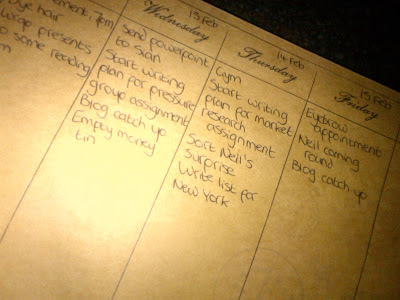 ye hair
wrap presents
o some reading
13 Feb
Wednesday
Send powerpoint
to Sian
Start writing
plan for pressure
group assignment
Blog catch up
Empty money
tin
14 Feb
Thursday
Gym
Start writing
plan for market
research
assignment
Sort Neil's
surprise
Write list for
New York
15 Feb
Friday
Eyebrow
appointment
Neil coming
round
Blog catch up